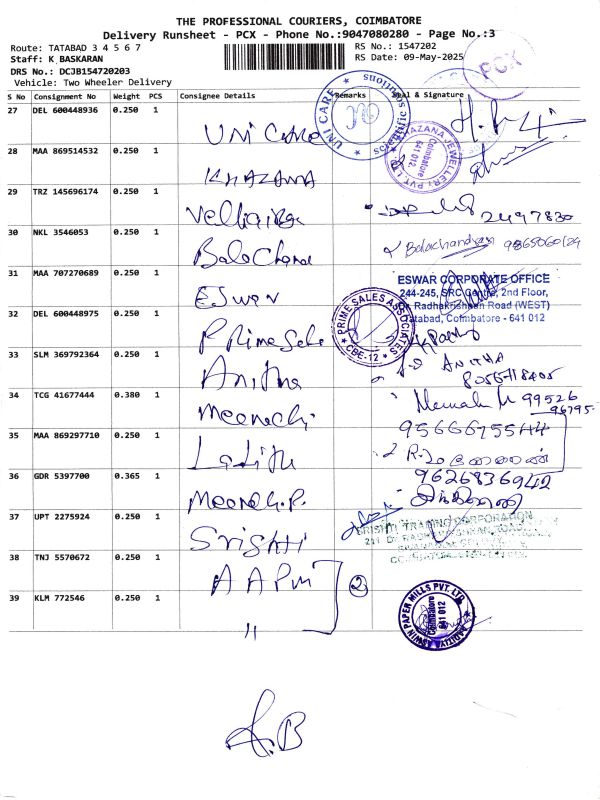 THE PROFESSIONAL COURIERS, COIMBATORE
Delivery Runsheet - PCX - Phone No.:9047080280 - Page No.:3
Route: TATABAD 3 4 5 6 7
RS No.: 1547202
Staff: K BASKARAN
RS Date: 09-May-2025
DRS No.: DCJB154720203
Vehicle: Two Wheeler Delivery
PCX
S No Consignment No Weight PCS Consignee Details Remarks Seal & Signature
27 DEL 600448936 0.250 1 UNI CARE
UNI CARE
28 MAA 869514532 0.250 1 KHAZANA
KHAZANA JEWELLERY PVT. LTD.
Coimbatore
641 012.
29 TRZ 145696174 0.250 1 2497830
30 NKL 3546053 0.250 1 Bala Chand
Balachandran
31 MAA 707270689 0.250 1 Eswar
ESWAR CORPORATE OFFICE
244-245, SRC Centre, 2nd Floor,
Radhakrishnan Road (WEST)
Tatabad, Coimbatore - 641 012
32 DEL 600448975 0.250 1 Prime Sale
PRIME SALES ASSOCIATES
CBE-12
33 SLM 369792364 0.250 1 Anitha
ANITHA
34 TCG 41677444 0.380 1 Meenachi
99526
35 MAA 869297710 0.250 1 Lalith
36 GDR 5397700 0.365 1
9626836942
37 UPT 2275924 0.250 1 Srishti
SRISHTI TRADING CORPORATION
38 TNJ 5570672 0.250 1 AAPM 2
39 KLM 772546 0.250 1 "
ADITIYA ASWIN PAPER MILLS PVT. LTD.
Coimbatore
641 012
K.B